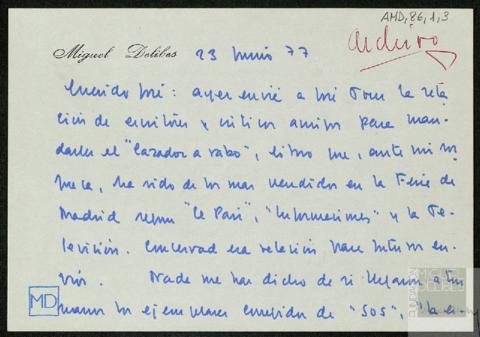 AMD, 86, 1, 3
Archivo
Miguel Delibes 23 junio 77
Querido José: ayer envié a José Tom la rela
ción de escritores y críticos amigos para man-
darles el "Cazador a rabo", libro que, ante mi sor
presa, ha sido de los más vendidos en la Feria de
Madrid según "Le País", "Informaciones" y la Te-
levisión. Conservad esa relación para futuros en-
víos. Nada me has dicho de si llegaron a tus
manos los ejemplares corregidos de "SOS",
MD